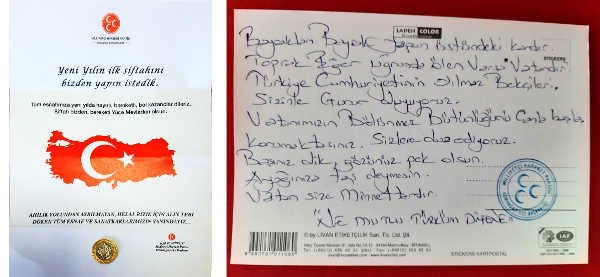 Yeni Yılın ilk siftahını
bizden yapın istedik.
Tüm esnafımıza yeni yılda hayırlı, bereketli, bol kazançlar dileriz.
Siftah bizden, bereketi Yüce Mevladan olsun.
AHİLİK YOLUNDAN AYRILMAYAN, HELAL RIZIK İÇİN ALIN TERİ
DÖKEN TÜM ESNAF VE SANATKARLARIMIZIN YANINDAYIZ...
LAPEN COLOR
STICKERS
Bayrakları Bayrak Yapan Üstündeki Kandır.
Toprak Eğer uğrunda ölen Varsa Vatandır.
Türkiye Cumhuriyetinin Ölmez Bekçileri,
Sizinle Gurur duyuyoruz.
Vatanımızın Bölünmez Bütünlüğünü
Korumaktasınız. Sizlere dua ediyoruz.
Başınız dik, gözünüz pek olsun.
Ayağınıza taş değmesin.
Vatan size Minnettardır.
NE MUTLU TÜRKÜM DİYENE
© by LİVAN ETİKETÇİLİK San. Tic. Ltd. Şti.
STICKERS KARTPOSTAL
IAF